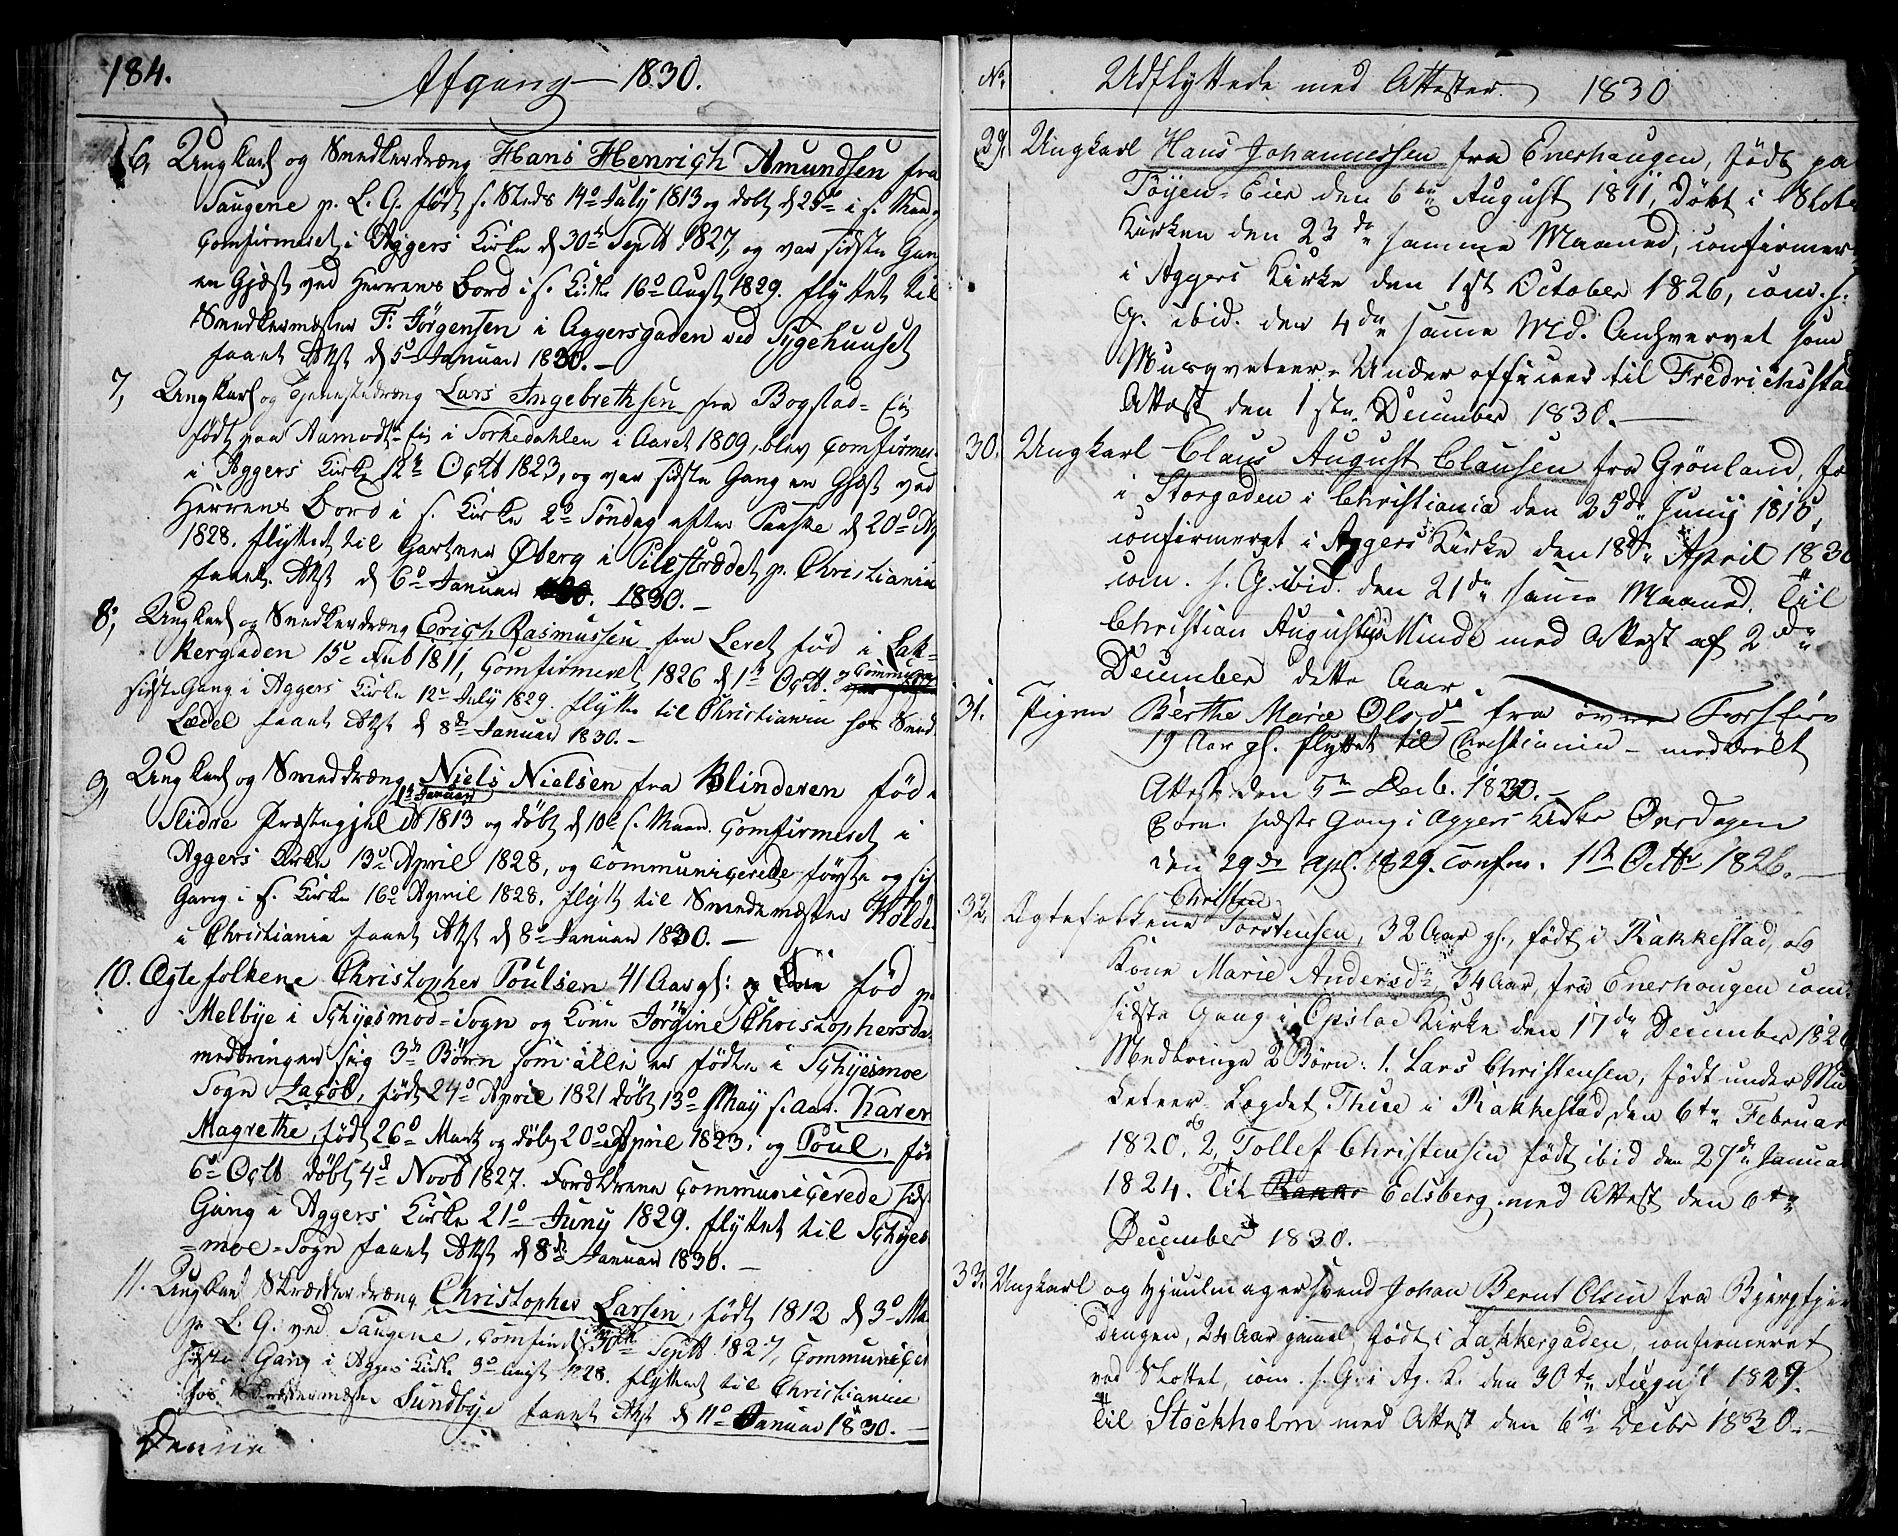 184.
Afgang 1830.
6, Ungkarl og Snedkerdræng Hans Henrich Amundsen fra
Saugene p. L. G. født s. Steds 14o July 1813 og døbt d 25o i s. Maaned
Confirmeret i Aggers Kirke d 30te Septb 1827, og var sidste Gang
en Gjæst ved Herrens Bord i s. Kirke 16o Augst 1829. flyttet til
Snedkermæster F: Jörgensen i Aggersgaden ved Sygehuuset
faaet Attst d 5o Januar 1830.—
7, Ungkarl og Tjenestedræng Lars Ingebrethsen fra Bogstad= Eie
født paa Aamodt-Eie i Sørkedahlen i Aaret 1809, blev Confirmeret
i Aggers Kirke 12te Octb 1823, og var sidste Gang en Gjæst ved
Herrens Bord i s. Kirke 2o Söndag efter Paaske d 20o
1828. flyttet til Gartner Öberg i Pilestrædet p. Christiania
faaet Attst d 6o Januar 1830.—
8, Ungkarl og Snedkerdræng Erich Rasmussen fra Leret fød i Lak-
kergaden 15o Feb 1811, Comfirmeret 1826 d 1te Octb. og Commun
sidste Gang i Aggers Kirke 12o July 1829. flytte til Christiania hos Sned.
Lædel faaet Attst d 8de Januar 1830.—
9, Ungkarl og Smeddræng Niels Nielsen fra Blinderen fød i
1te Januar
Slidre Præstegjæld 1813 og døbt d 10o s. Maan. Comfirmeret i
Aggers Kirke 13o April 1828, og Communicerede første og sidste
Gang i s. Kirke 16o April 1828. flytt til Smedemæster Kolde-
i Christiania faaet Attst d 8o Januar 1830.—
10. Ægtefolkene Christopher Poulsen 41 Aar gl: fød p
Melbye i Schjesmod=Sogn og Kone Jörgine Christophersda
medbringer sig 3de Børn som alle er fødte i Schjesmoe
Sogn Jacob, født 24o April 1821 døbt 13o May s. Aar. Karen
Magrethe, født 26o Marts og døbt 20o April 1823. og Poul, fød
6te Octb døbt 4de Novb 1827. Forældrene Communicerede sidste
Gang i Aggers Kirke 21o Juny 1829. flyttet til Schjes
=moe=Sogn faaet Attst d 8de Januar 1830.—
11. Ungkarl Skrædderdræng Christopher Larsen, født 1812 d 3o Ma
p. L. G: ved Saugene, Comfirm d 30te Septb. 1827, Communicer
sidste Gang i Aggers Kirke 3o Augst 1828. flyttet til Christiania
hos Skræddermæster Sundbye faaet Attst d 11o Januar 1830.—
Denne
No
Udflyttede med Attester. 1830
29. Ungkarl Hans Johannessen fra Enerhaugen, født paa
Töyen=Eier den 6te August 1811, døbt i Slots
Kirken den 23de samme Maaned, confirmer
i Aggers Kirke den 1ste October 1826, com. s.
G. ibid. den 4de samme Md. Anhvervet som
Musqveteer-Underofficeer til Fredrichsstad
Attest den 1ste December 1830.—
30. Ungkarl Claus August Clausen fra Grönland, fø
i Storgaden i Christiania den 25de Junij 1815,
confirmeret i Aggers Kirke den 18de April 1830
com. s. G. ibid. den 21de samme Maaned. Til
Christian Augusts Minde med Attest af 2de
December dette Aar.
31. Pigen Berthe Marie Olsd. fra övre Fossfire
19 Aar gl. flyttet til Christiania — meddeelt
Attest den 5te Decb. 1830.—
Com. sidste Gang i Aggers Kirke Onsdagen
den 29de Apl. 1829. Confm. 1te Octb 1826.—
Christen
32. Ægtefolkene Torstensen, 32 Aar gl., født i Rakkestad, og
Kone Marie Andersd., 34 Aar, fra Enerhougen com.
sidste Gang i Opsloe Kirke den 17de December 1826
Medbringe 2 Børn: 1. Lars Christensen, født under Mu
keteer-Lægdet Thue i Rakkestad, den 6te Februar
1820. og 2, Tollef Christensen født ibid den 27de Januar
1824. Til Edsberg med Attest den 6te
December 1830.—
33. Ungkarl og Hjuulmagersvend Johan Bernt Olsen fra Bjergfjer
dingen, 24 Aar gammel født i Lakkergaden, confirmeret
ved Slottet, com. s. G. i Ag. K. den 30te August 1829.
Til Stockholm med Attest den 6te Decbr 1830.—